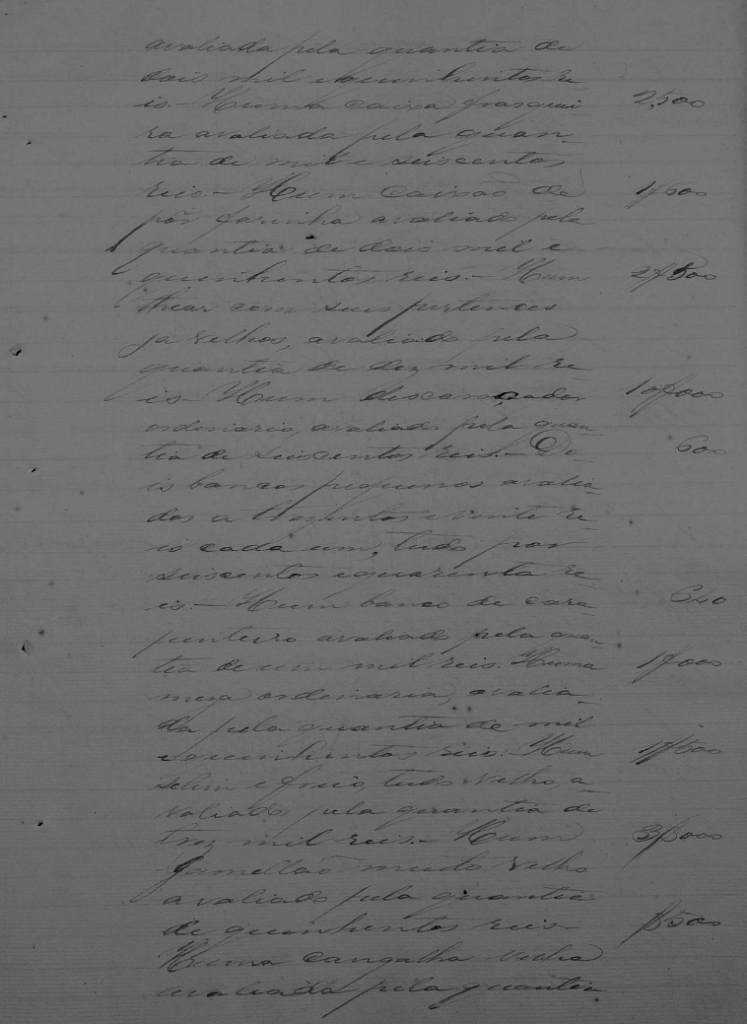 avaliada pela quantia de
dois mil e quinhentos re
is. Huma caixa frasquei 2,500
ra avaliada pela quan-
tia de mil e seiscentos
reis. – Hum caixaõ de 1$600
pôr farinha avaliado pela
quantia de dois mil e
quinhentos reis. – Hum 2$500
thear com seus pertences
ja velhos, avaliado pela
quantia de dez mil re
is – Hum descaroçador 10$000
ordinario, avaliado pela quan
tia de seiscentos reis. – Do- 600
is bancos pequenos avalia-
dos a trezentos e vinte re-
is cada um, tudo por
seiscentos e quarenta re
is. – Hum banco de cara 640
penteiro avaliado pela quan
tia de um mil reis. Huma 1$000
meza ordinaria, avalia-
da pela quantia de mil
e quinhentos reis. Hum 1$500
selim e freio, tudo velho, a-
valiado pela quantia de
trez mil reis. – Hum 3$000
gamellaõ muito velho
avaliado pela quantia
de quinhentos reis $500
Huma cangalha velha
avaliada pela quantia